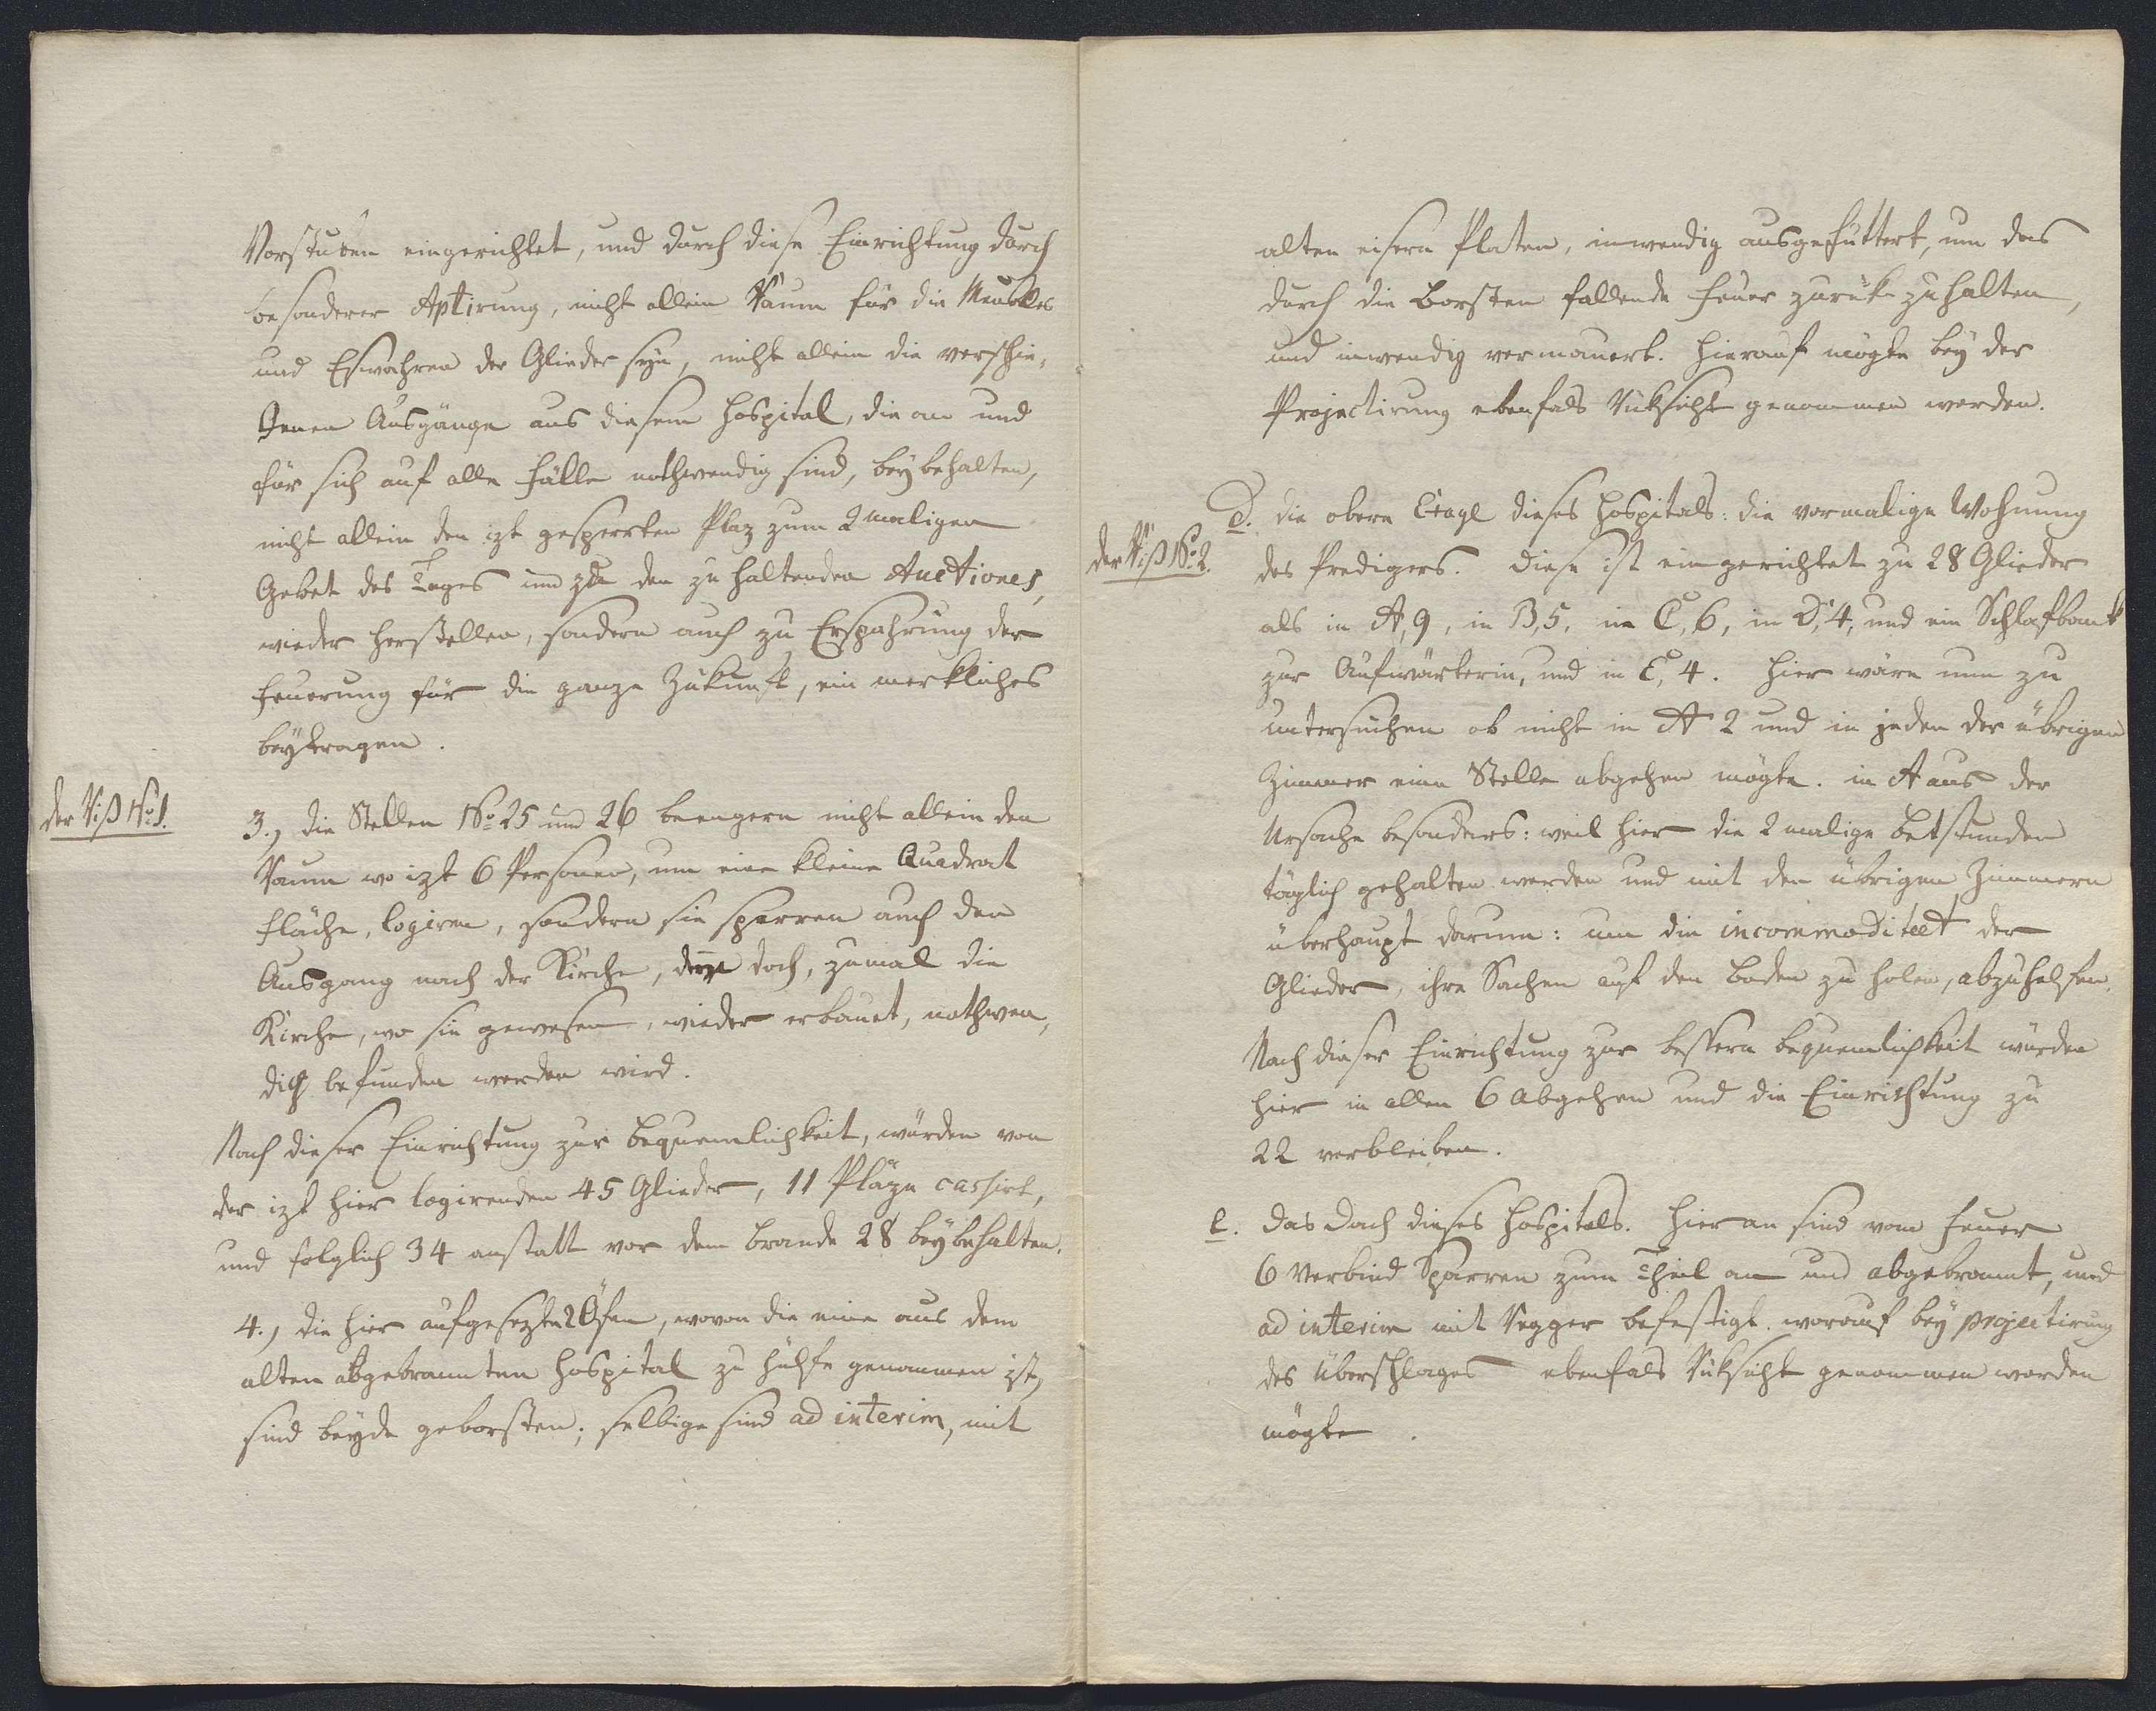 Vorstuben eingerichtet, und durch diese Einrichtung durch
besonderer Aptirung, nicht allein Raum für die Meubles
und Eswahren der Glieder seyn, nicht allein die verschie,
denen Ausgänge aus diesem Hospital, die an und
für sich auf alle Fälle nothwendig sind, beybehalten,
nicht allein den izt gesperrten Plaz zum 2maligen
Gebet des Tages und zu den zu haltenden Auctiones,
wieder herstellen, sondern auch zu Erspahrung der
Feuerung für die ganze Zukunft, ein merkliches
beytragen.
der Riß No: 1.
3., die Stellen No: 25 und 26 beengern nicht allein den
Raum wo izt 6 Personen, um eine kleine Quadrat
Fläche, logiren, sondern sie sperren auch den
Ausgang nach der Kirche, der doch, zumal die
Kirche, wo sie gewesen, wieder erbauet, nothwen,
dig befunden werden wird.
Nach dieser Einrichtung zur Bequemlichkeit, würden von
der izt hier logirenden 45 Glieder, 11 Pläze cassirt,
und folglich 34 anstatt vor dem Brande 28 beybehalten.
4., die hier aufgesezten 2 Öfen, wovon die eine aus dem
alten abgebrannten Hospital zu Hülfe genommen ist,
sind beyde geborsten; selbige sind ad interim, mit
alten eisern Platen, inwendig ausgefuttert, um das
durch die Borsten fallende Feuer zurük zu halten,
und inwendig vermauert. Hierauf mögte bey der
Projectirung ebenfals Rüksicht genommen werden.
der Riß No: 2.
d. die obere Etage dieses Hospitals: die vormalige Wohnung
des Predigers. Diese ist eingerichtet zu 28 Glieder
als in A, 9, in B, 5, in C, 6, in D, 4, und ein Schlafbank
zur Aufwärterin, und in E, 4. Hier wäre nun zu
untersuchen ob nicht in A 2 und in jeden der übrigen
Zimmer eine Stelle abgehen mögte. in A aus der
Ursache besonders: weil hier die 2malige Betstunden
täglich gehalten werden und mit den übrigen Zimmern
überhaupt darum: um die incommoditeet der
Glieder, ihre Sachen auf den Boden zu holen, abzuhelfen.
Nach dieser Einrichtung zur bessern Bequemlichkeit würden
hier in allen 6 abgehen und die Einrichtung zu
22 verbleiben.
e. das Dach dieses Hospitals. Hier an sind vom Feuer
6 Verbind Sparren zum Theil an und abgebrannt, und
ad interim mit Regger befestigt. worauf bey projectirung
des Überschlages ebenfals Rüksicht genommen werden
mögte.